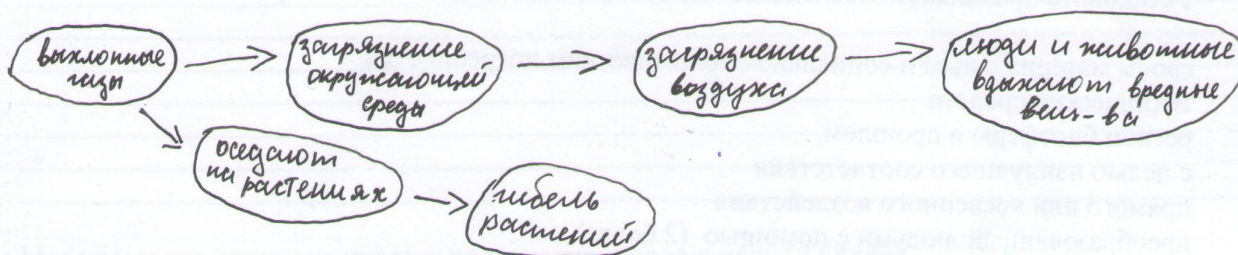 выхлопные
газы
загрязнение
окружающей
среды
загрязнение
воздуха
люди и животные
вдыхают вредные
вещ-ва
оседают
на растениях
гибель
растений